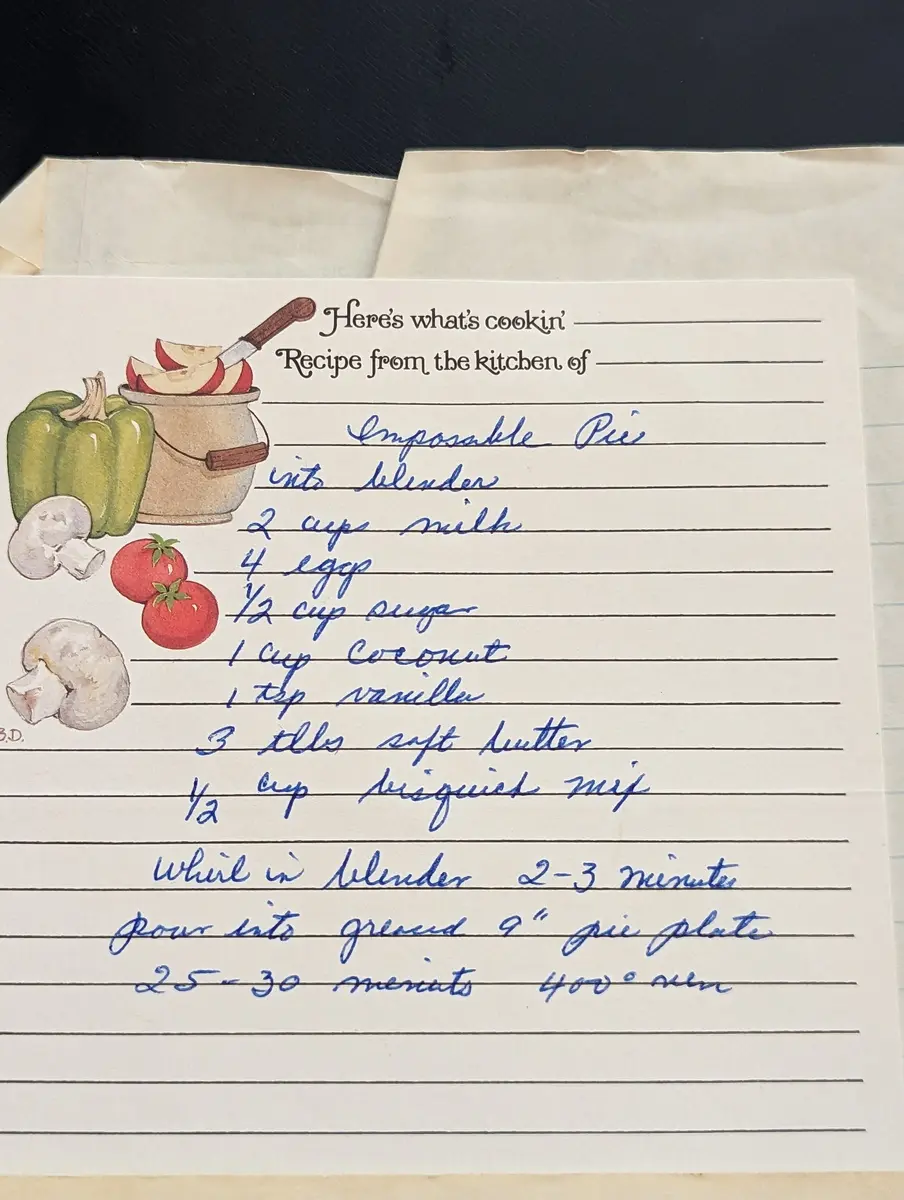 Here's what's cookin'
Recipe from the kitchen of
Imposable Pie
into blender
2 cups milk
4 eggs
1/2 cup sugar
1 cup coconut
1 tsp vanilla
3 tlbs soft butter
1/2 cup bisquick mix
B.D.
Whirl in blender 2-3 minutes
pour into greased 9" pie plate
25-30 minuts 400°